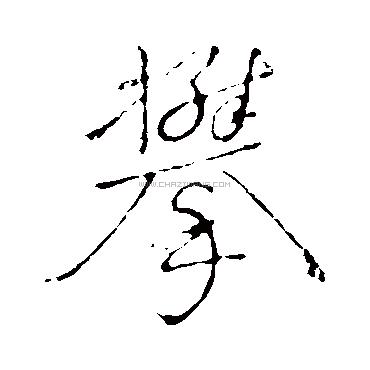 攀
WWW.CHAZIDIAN.COM